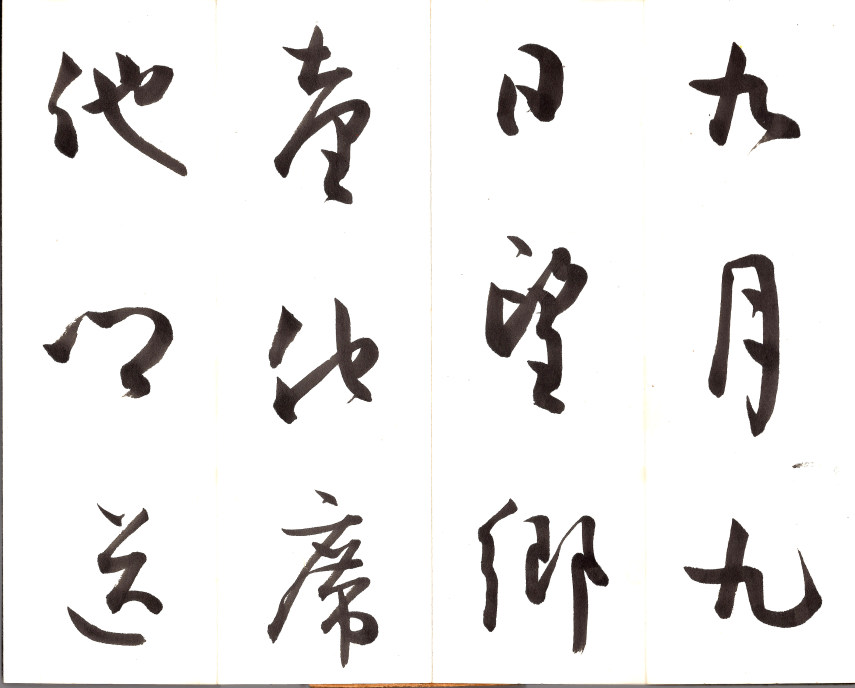 九月九
日望鄉
臺他席
他鄉送